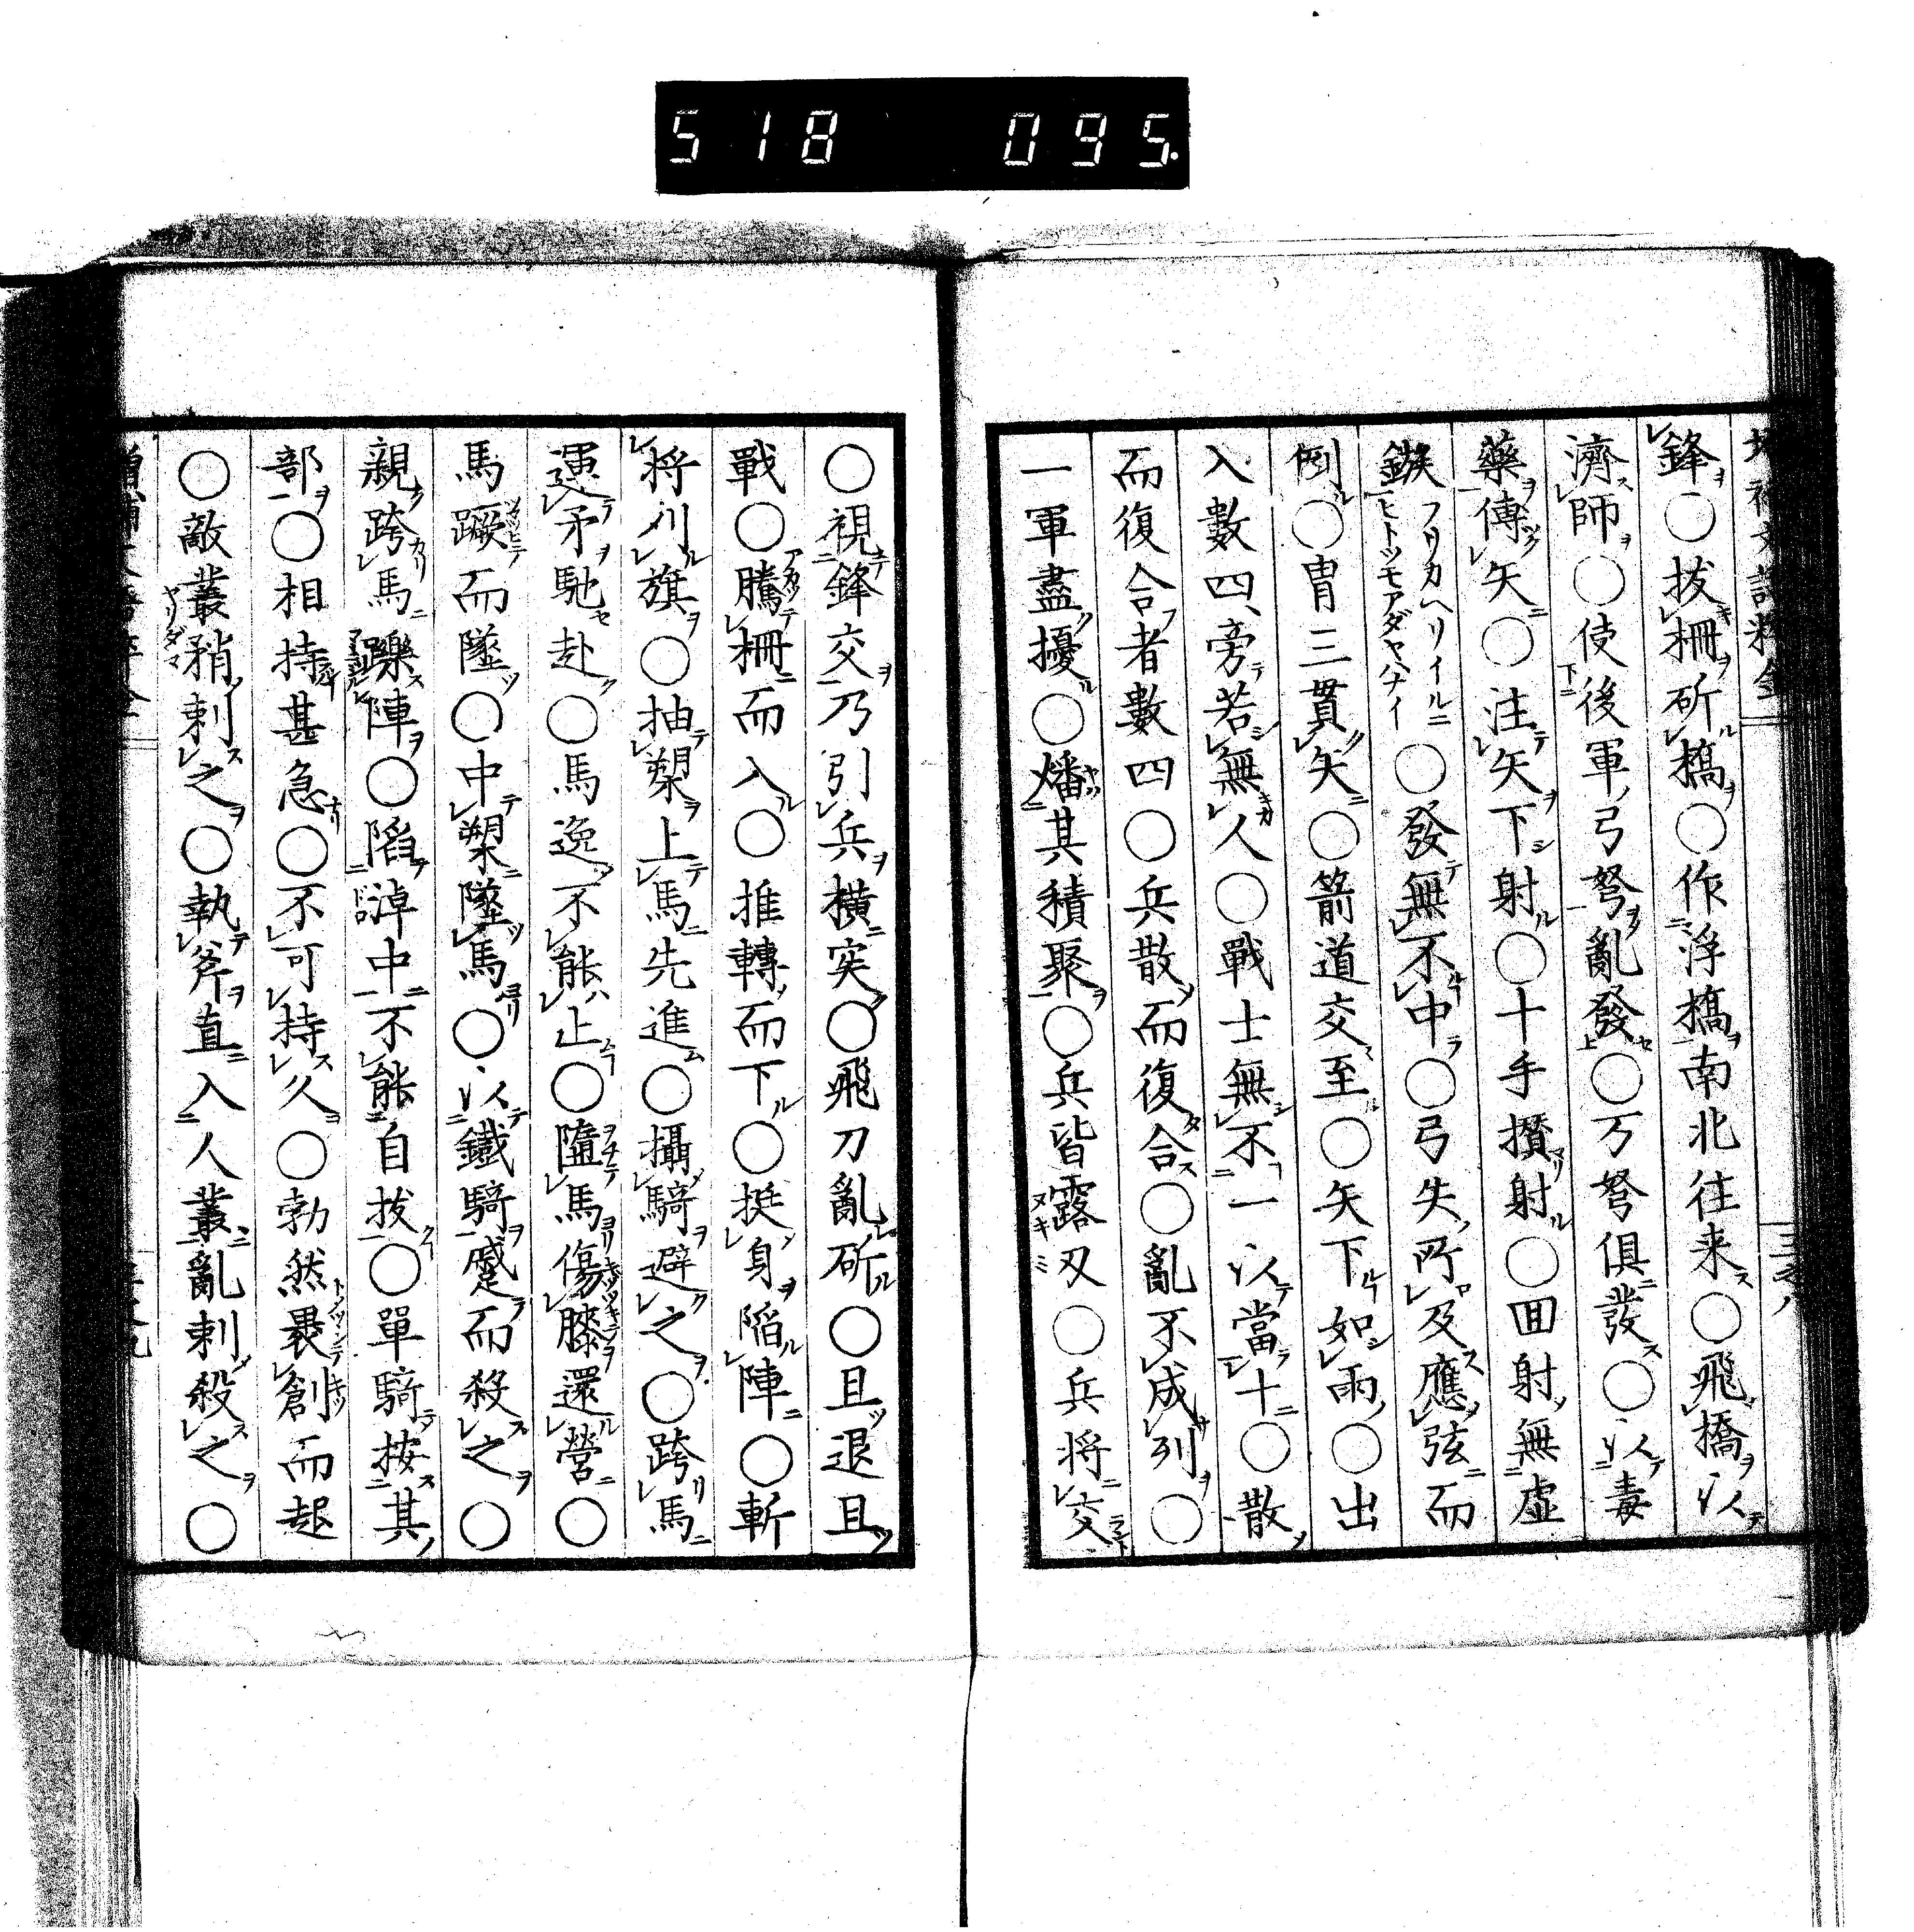 518 095.
鋒○拔柵斫橋○作浮橋南北往来○飛橋以
濟師○使後軍弓弩亂發○万弩俱發○以毒
藥傅矢○注矢下射○十手攢射○囬射無虛
鏃フリカヘリイルニヒトツモアダヤハナイ○發無不中○弓失所及應弦而
倒○胄三貫矢○箭道交至○矢下如雨○出
入數四旁若無人○戰士無不一以當十○散
而復合者數四○兵散而復合○亂不成列○
一軍盡擾○燔其積聚○兵皆露刃○兵将交
○視鋒交乃引兵橫突○飛刀亂斫○且退且
戰○騰柵而入○推轉而下○挺身陷陣○斬
将刈旗○抽槊上馬先進○攝騎避之○跨馬
運矛馳赴○馬逸不能止○墮馬傷膝還營○
馬蹶而墜○中槊墜馬○以鐵騎蹙而殺之○
親跨馬躒陣○陷淖中不能自拔○單騎按其
部○相持甚急○不可持久○勃然褁創而起
○敵叢矟刺之○執斧直入人叢亂刺殺之○